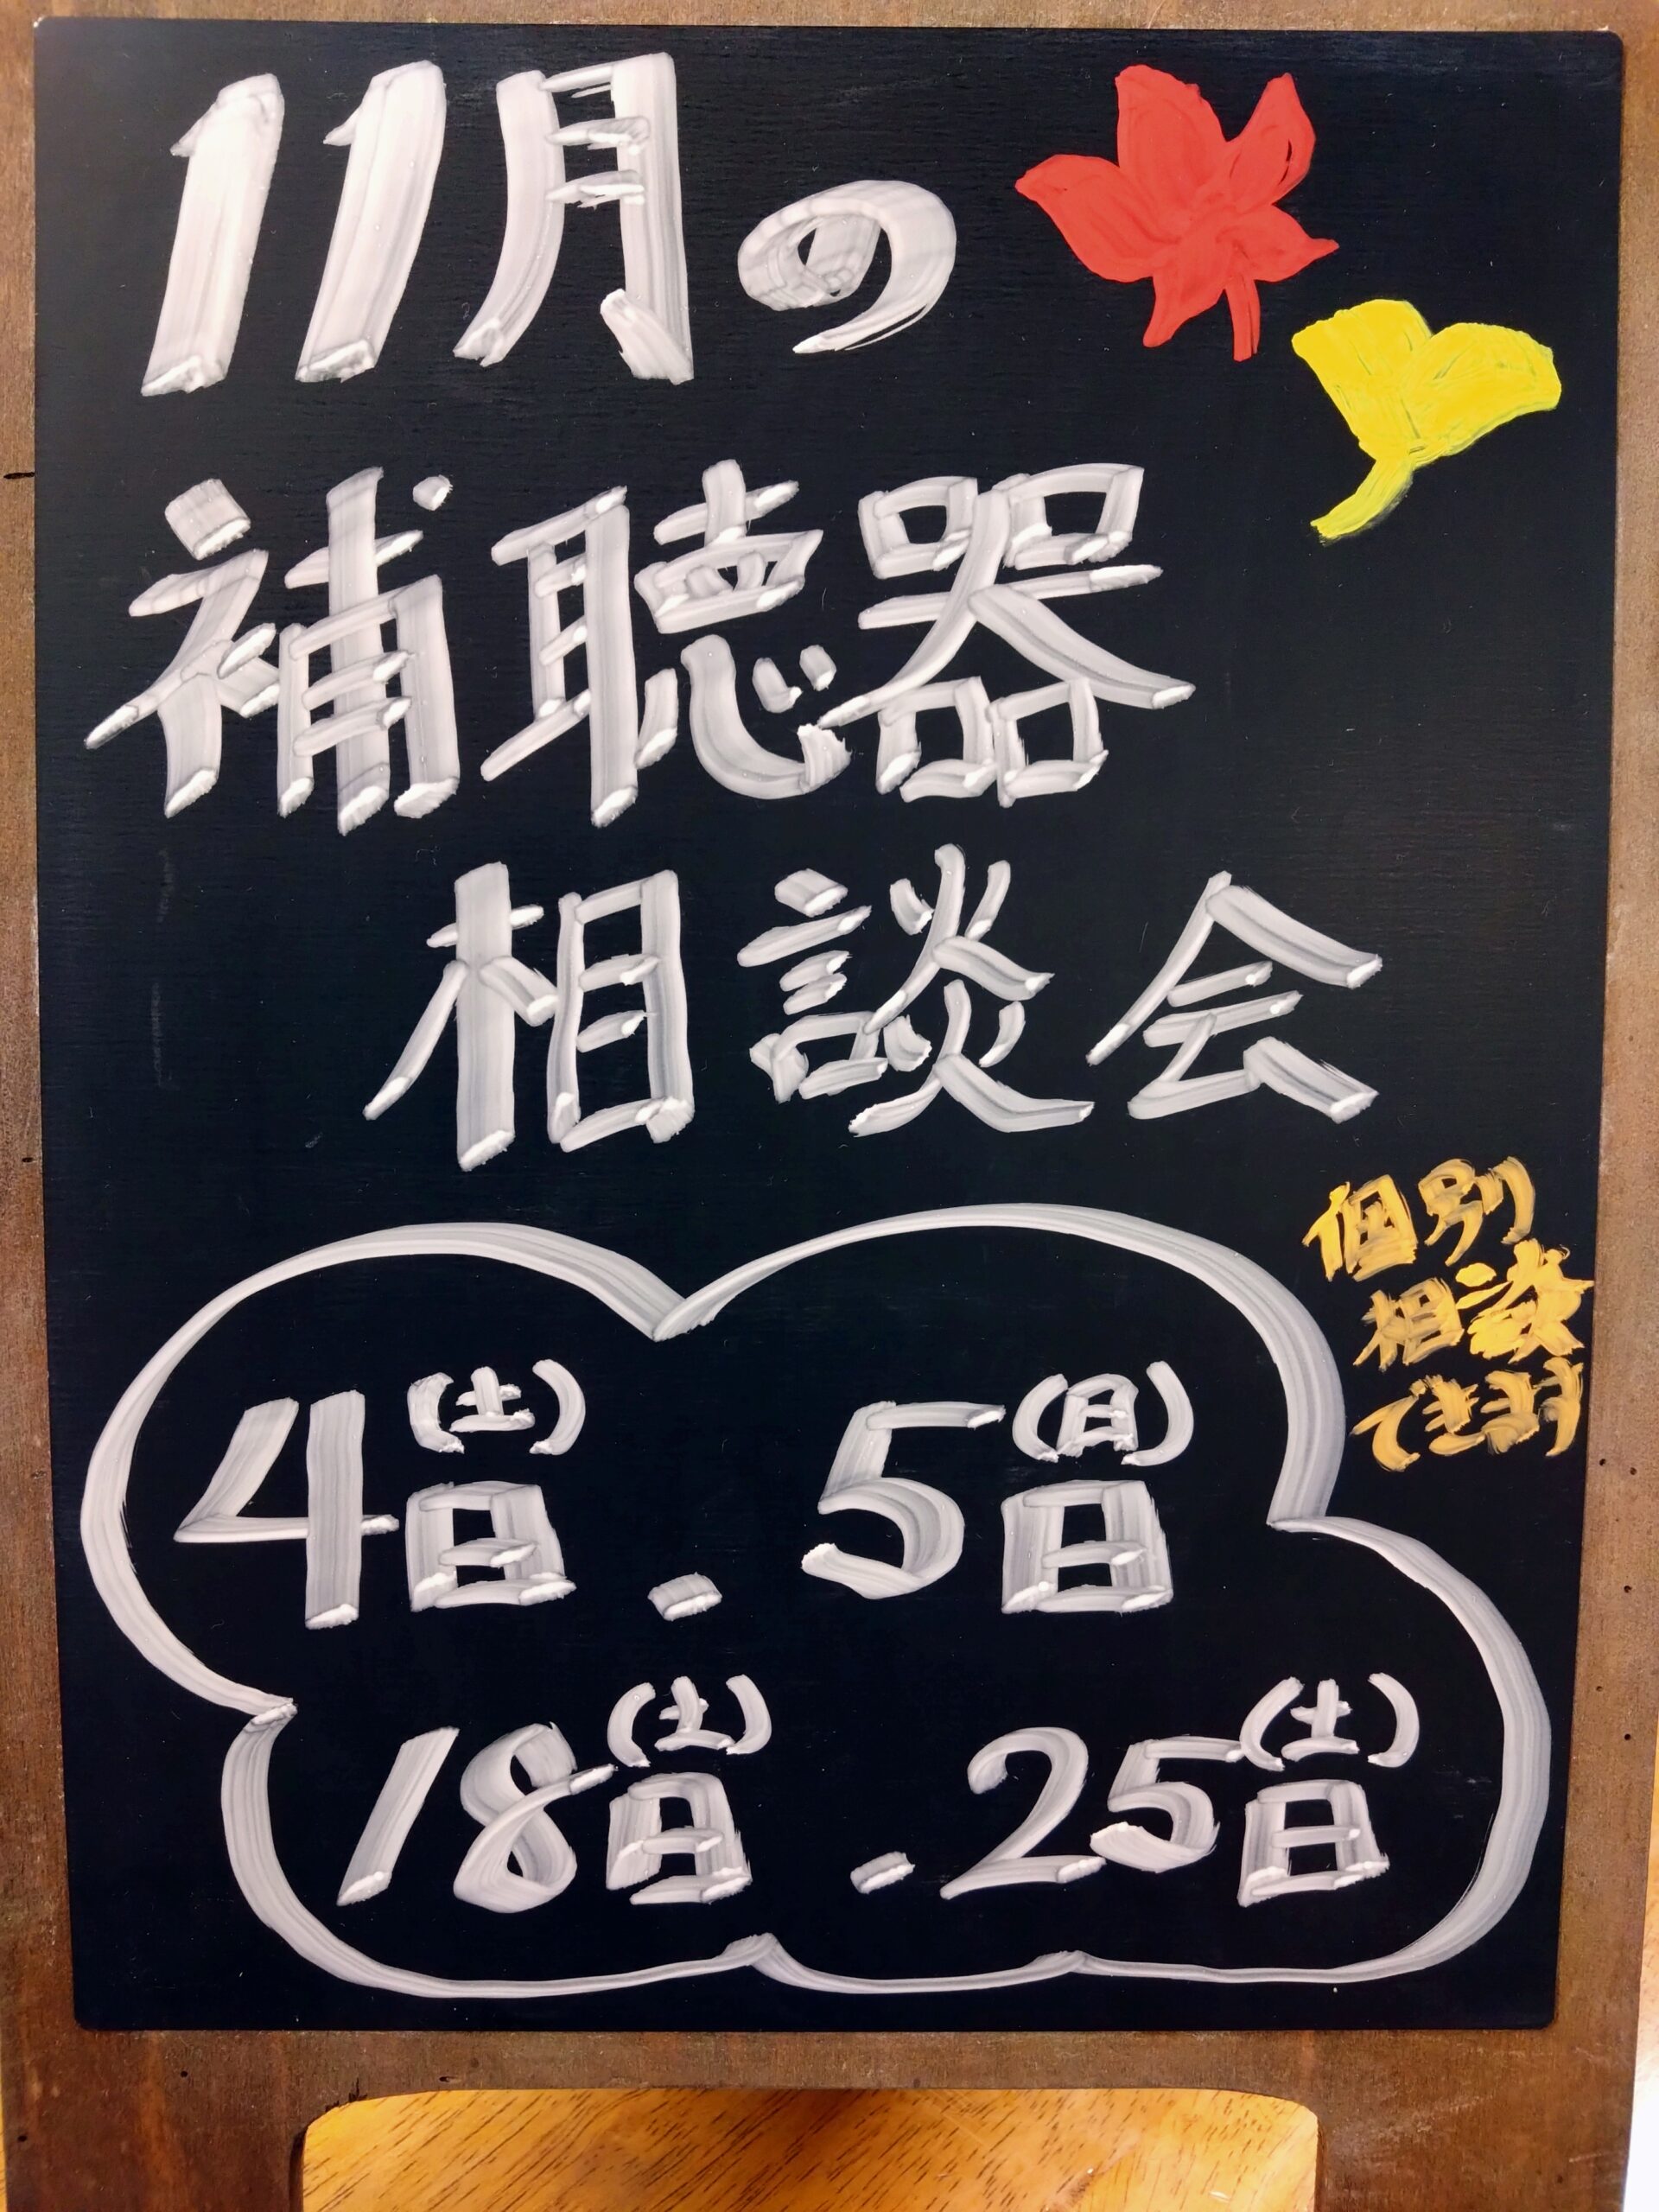 11月の
補聴器
相談会
個別
相談
できます
4日(土)・5日(月)
18日(土)・25日(土)